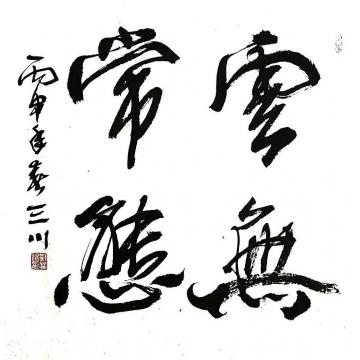 雲無
常態
丙申年春三川